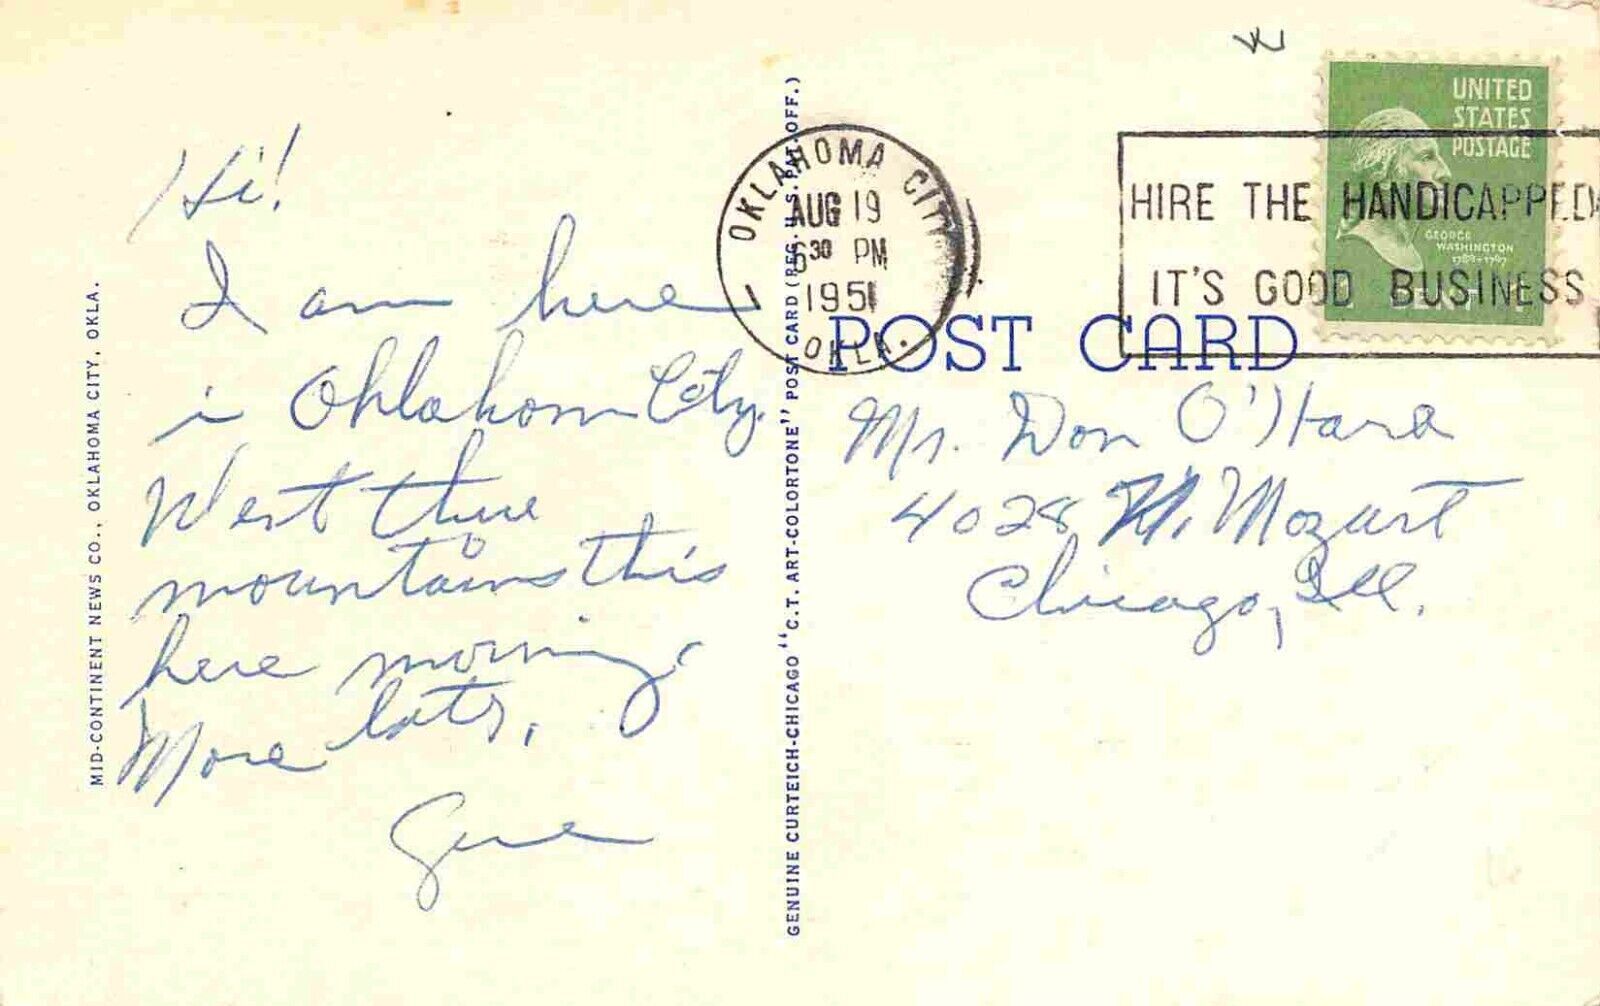 Hi!
I am here
in Oklahoma City.
Went thru
mountains this
here morning.
More later,
Gene
MID-CONTINENT NEWS CO., OKLAHOMA CITY, OKLA.
GENUINE CURTEICH-CHICAGO "C.T. ART-COLORTONE" POST CARD (REG. U.S. PAT. OFF.)
OKLAHOMA CITY
AUG 19
6 30 PM
1951
OKLA.
HIRE THE HANDICAPPED
IT'S GOOD BUSINESS
UNITED
STATES
POSTAGE
GEORGE
WASHINGTON
1789-1797
1 CENT 1
POST CARD
Mr. Don O'Hara
4028 N. Mozart
Chicago, Ill.